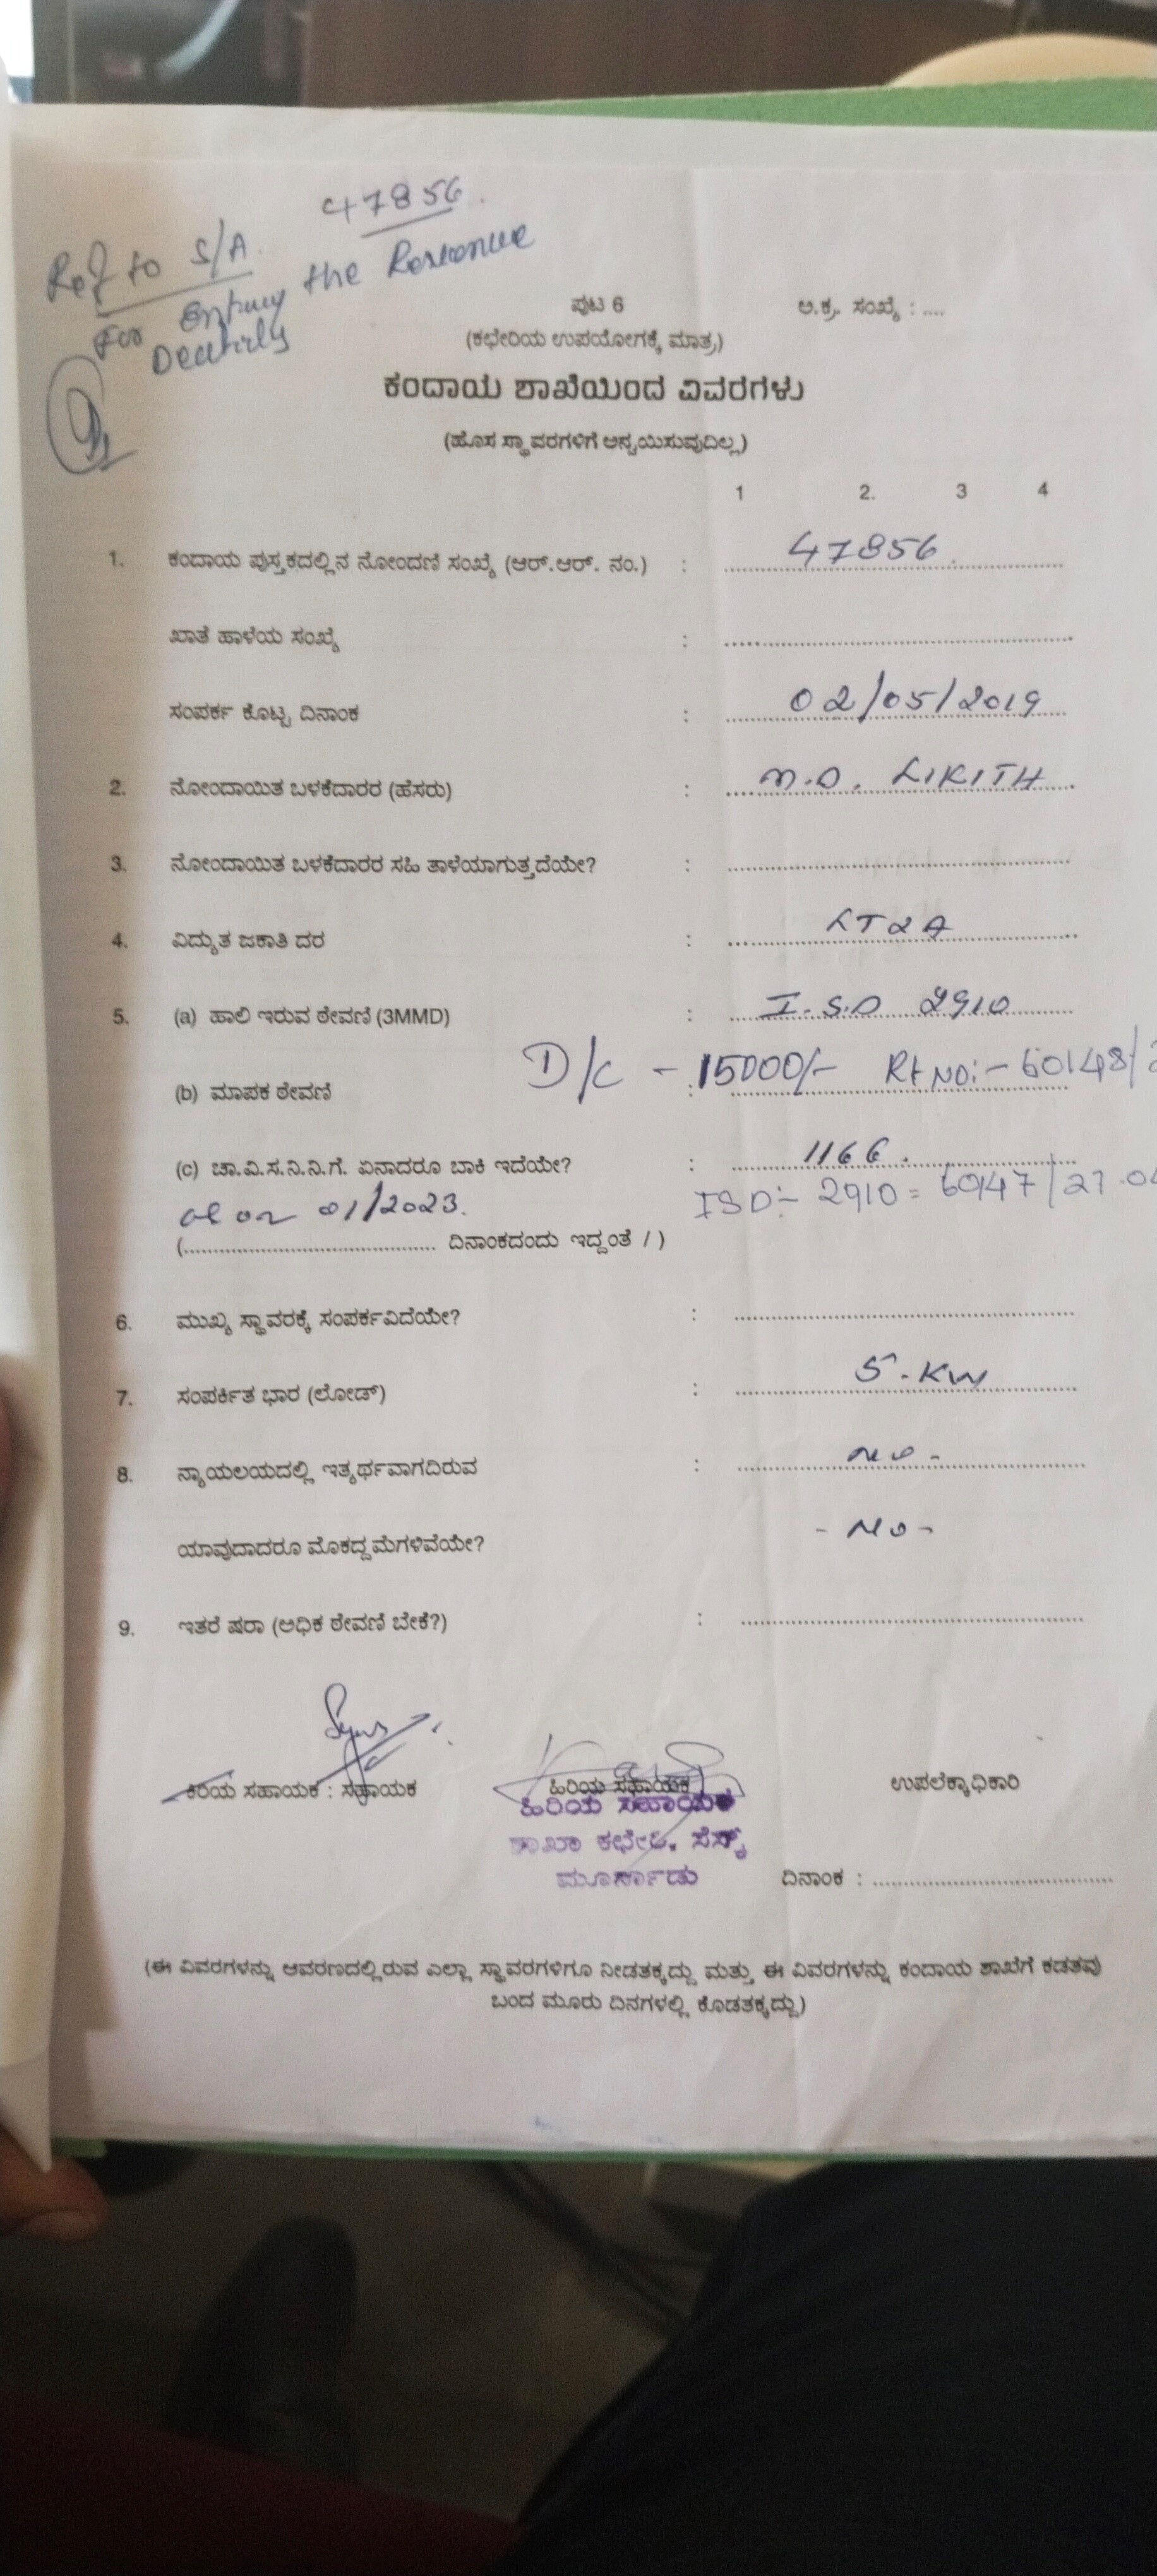 47856.
Ref to S/A.
For Entruy the Revenue
Deatirly
ಪುಟ 6
ಅ.ಕ್ರ. ಸಂಖ್ಯೆ : ....
(ಕಛೇರಿಯ ಉಪಯೋಗಕ್ಕೆ ಮಾತ್ರ)
ಕಂದಾಯ ಶಾಖೆಯಿಂದ ವಿವರಗಳು
(ಹೊಸ ಸ್ಥಾವರಗಳಿಗೆ ಅನ್ವಯಿಸುವುದಿಲ್ಲ)
1 2. 3 4
1. ಕಂದಾಯ ಪುಸ್ತಕದಲ್ಲಿನ ನೋಂದಣಿ ಸಂಖ್ಯೆ (ಆರ್.ಆರ್. ನಂ.) : 47856.
ಖಾತೆ ಹಾಳೆಯ ಸಂಖ್ಯೆ :
ಸಂಪರ್ಕ ಕೊಟ್ಟ ದಿನಾಂಕ : 02/05/2019
2. ನೋಂದಾಯಿತ ಬಳಕೆದಾರರ (ಹೆಸರು) : M.D. LIKITH
3. ನೋಂದಾಯಿತ ಬಳಕೆದಾರರ ಸಹಿ ತಾಳೆಯಾಗುತ್ತದೆಯೇ? :
4. ವಿದ್ಯುತ ಜಕಾತಿ ದರ : LT2A
5. (a) ಹಾಲಿ ಇರುವ ಠೇವಣಿ (3MMD) : I.S.D 2910
D/C - 15000/- Rt NO:- 60148/
(b) ಮಾಪಕ ಠೇವಣಿ :
(c) ಚಾ.ವಿ.ಸ.ನಿ.ನಿ.ಗೆ. ಏನಾದರೂ ಬಾಕಿ ಇದೆಯೇ? : 1166.
ISD:- 2910 = 60147/27.0
on 01/2023.
(........ ದಿನಾಂಕದಂದು ಇದ್ದಂತೆ / )
6. ಮುಖ್ಯ ಸ್ಥಾವರಕ್ಕೆ ಸಂಪರ್ಕವಿದೆಯೇ? :
7. ಸಂಪರ್ಕಿತ ಭಾರ (ಲೋಡ್) : 5.KW
8. ನ್ಯಾಯಲಯದಲ್ಲಿ ಇತ್ಯರ್ಥವಾಗದಿರುವ : NO -
ಯಾವುದಾದರೂ ಮೊಕದ್ದಮೆಗಳಿವೆಯೇ? - NO -
9. ಇತರೆ ಷರಾ (ಅಧಿಕ ಠೇವಣಿ ಬೇಕೆ?) :
ಕಿರಿಯ ಸಹಾಯಕ : ಸಹಾಯಕ
ಹಿರಿಯ ಸಹಾಯಕ
ಉಪಲೆಕ್ಕಾಧಿಕಾರಿ
ಹಿರಿಯ ಸಹಾಯಕ
ಶಾಖಾ ಕಛೇರಿ. ಸೆಸ್ಕ್
ಮೂರ್ನಾಡು
ದಿನಾಂಕ :
(ಈ ವಿವರಗಳನ್ನು ಆವರಣದಲ್ಲಿರುವ ಎಲ್ಲಾ ಸ್ಥಾವರಗಳಿಗೂ ನೀಡತಕ್ಕದ್ದು ಮತ್ತು ಈ ವಿವರಗಳನ್ನು ಕಂದಾಯ ಶಾಖೆಗೆ ಕಡತವು
ಬಂದ ಮೂರು ದಿನಗಳಲ್ಲಿ ಕೊಡತಕ್ಕದ್ದು)